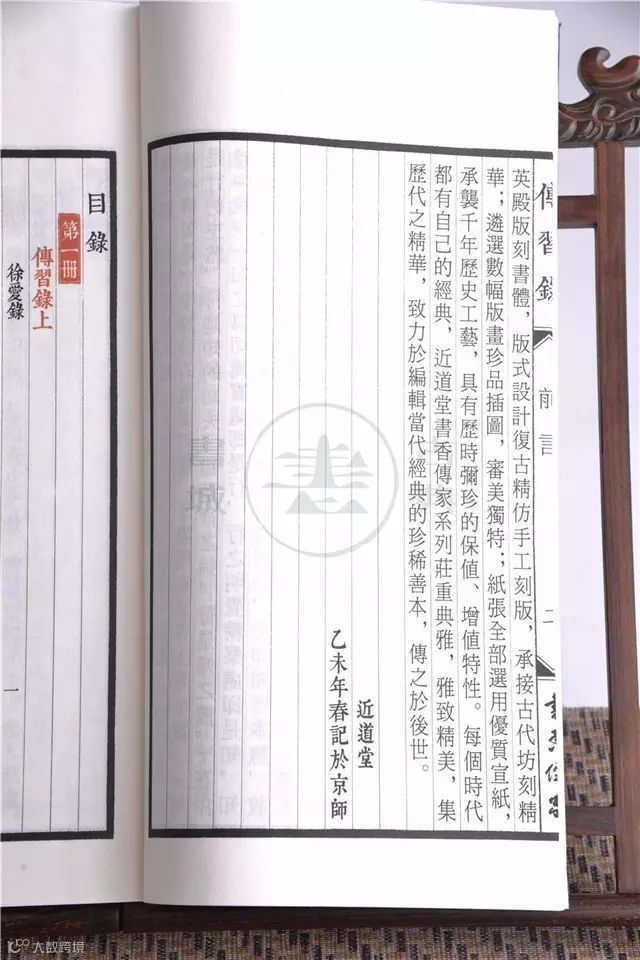 傳習錄
前言
二
英殿版刻書體，版式設計復古精仿手工刻版，承接古代坊刻精
華；遴選數幅版畫珍品插圖，審美獨特；紙張全部選用優質宣紙，
承襲千年歷史工藝，具有歷時彌珍的保值、增值特性。每個時代
都有自己的經典，近道堂書香傳家系列莊重典雅，雅致精美，集
歷代之精華，致力於編輯當代經典的珍稀善本，傳之於後世。
近道堂
乙未年春記於京師
目錄
第一冊
傳習錄上
徐愛錄
一
大數跨境